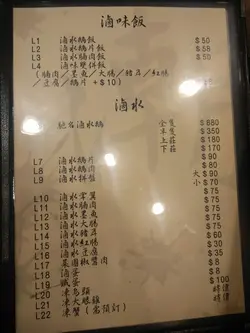 滷味飯
L1 滷水鵝飯 $50
L2 滷水鵝片飯 $58
L3 滷水腩肉飯 $50
L4 滷味雙拼飯
(腩肉／墨魚／大腸／豬舌／紅腸
／豆腐／鵝片 +$10)
滷水
馳名滷水鵝 全隻 $680
半隻 $350
上莊 $180
下莊 $170
L7 滷水鵝片 $90
L8 滷水腩肉 $80
L9 滷水拼盤 大 $90
小 $70
L10 滷水掌翼 $75
L11 滷水腩肉 $75
L12 滷水墨魚 $75
L13 滷水大腸 $75
L14 滷水豬舌
L15 滷水紅腸
L16 滷水豆腐
L17 菜圃椒醬肉
L18 滷蛋 $8
L19 鹹蛋 $8
L20 凍烏頭 $100
L21 凍大眼雞 時價
L22 凍蟹 (需預訂) 時價